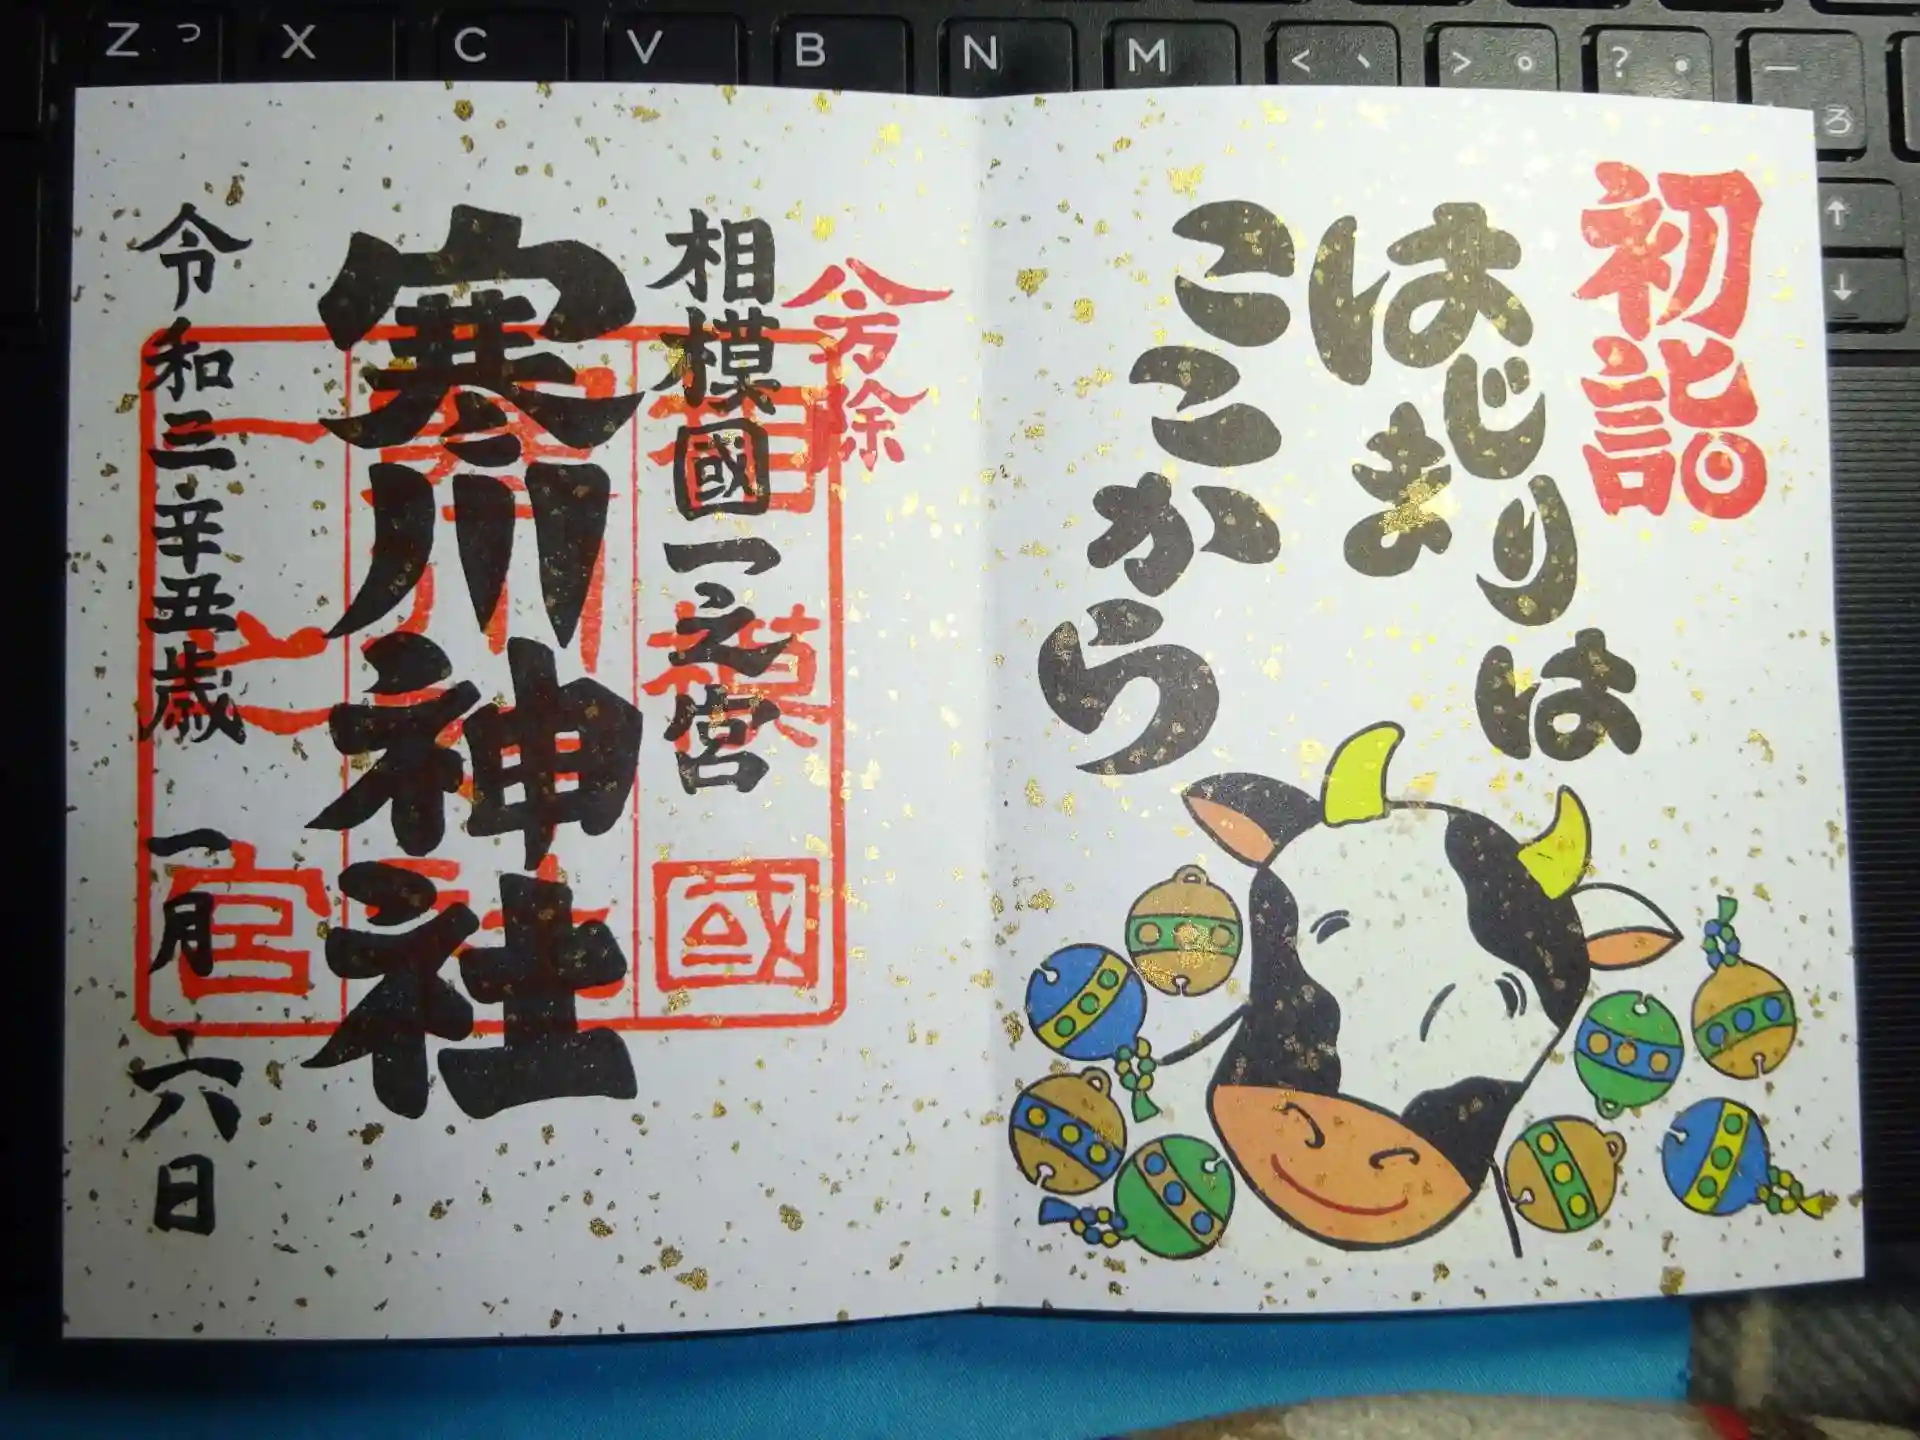 初詣
はじまりは
ここから
八方除
相模國一之宮
寒川神社
令和三辛丑歳 一月 六日
相模國
寒川神社
一之宮
Z っ
X
C
V
B
N
M
< 、
> 。
? ・
_ ろ
↑
↓